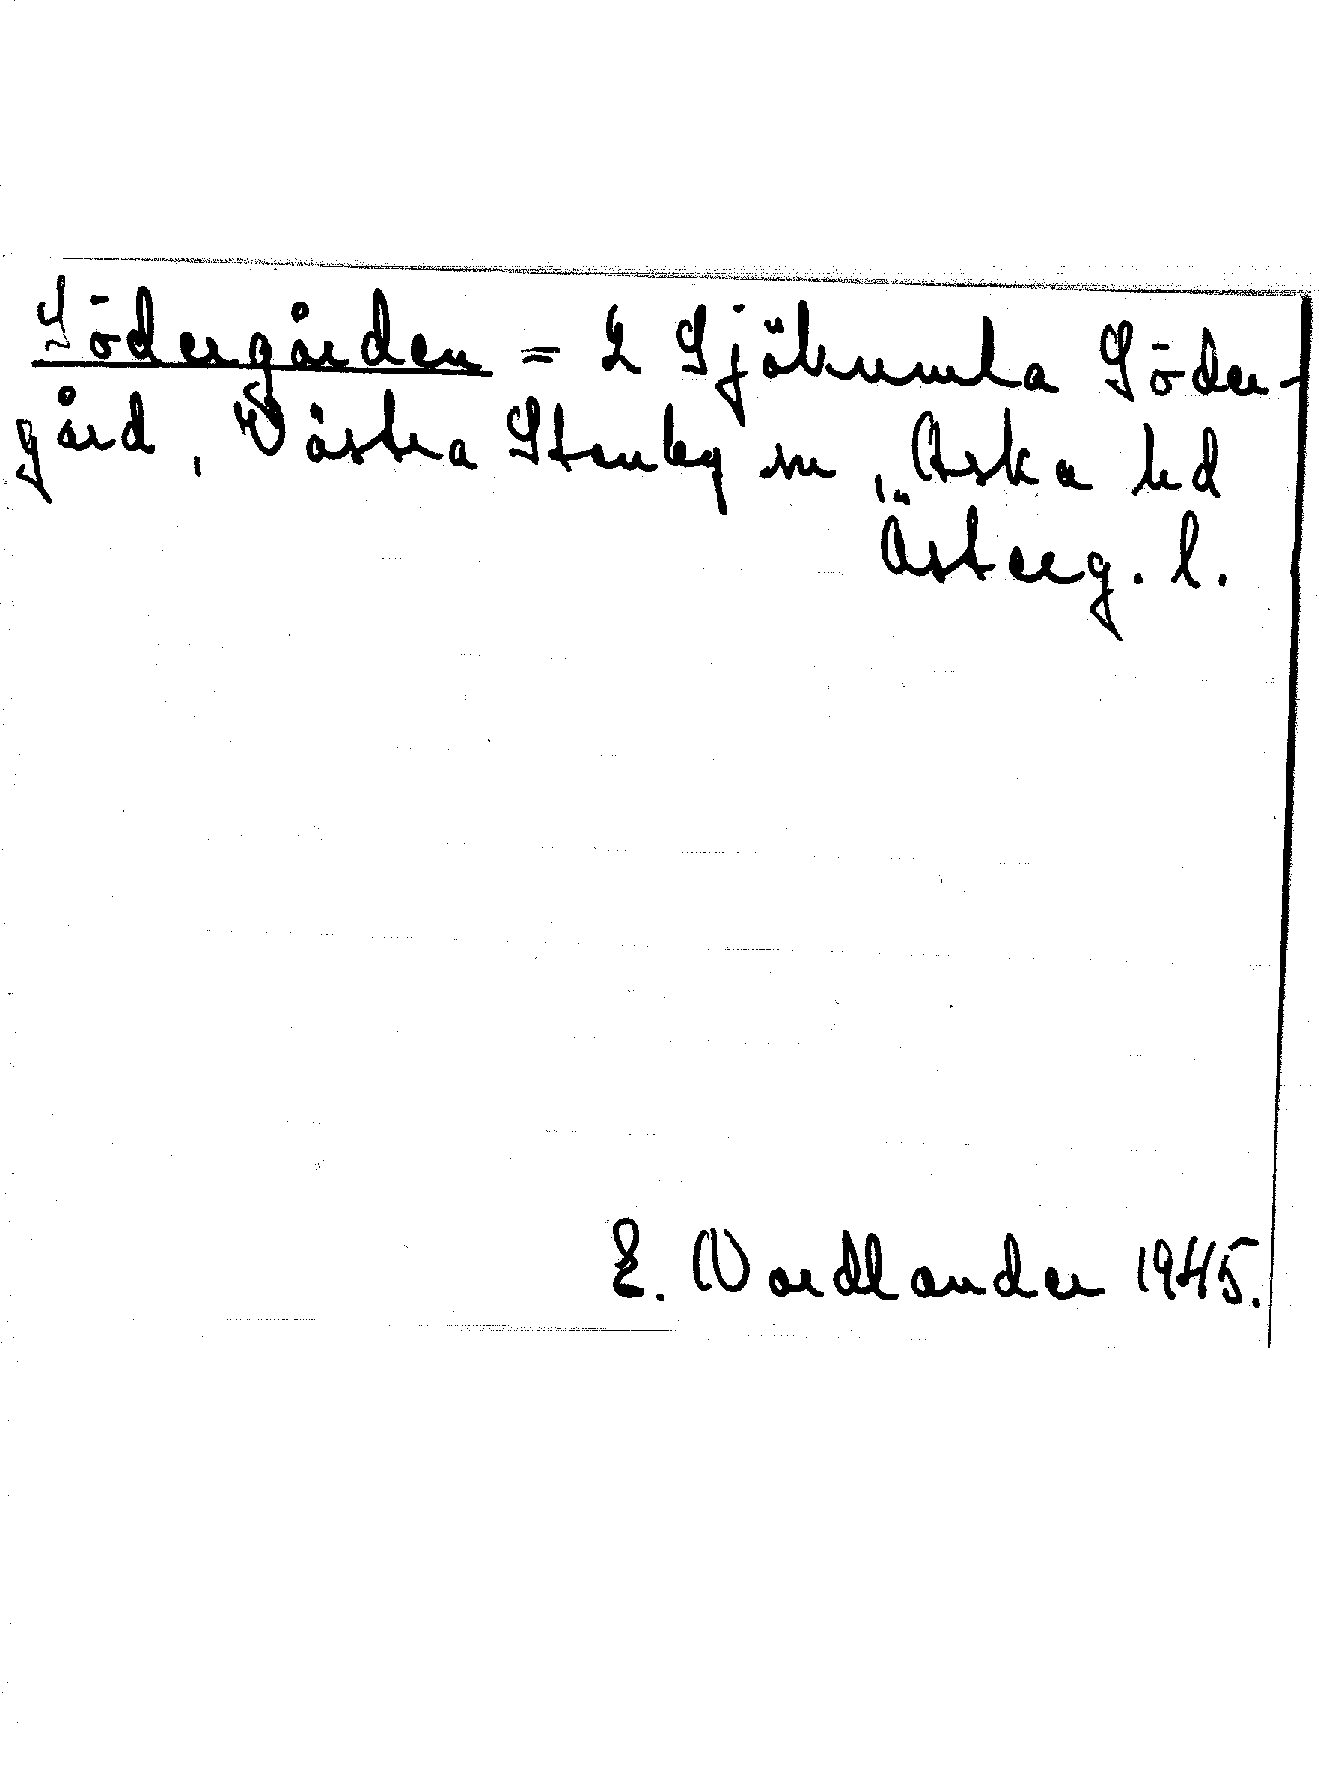 Södergården = 2 Sjökumla Söder-
gård, Västra Stenby sn, Aska hd
Österg. l.
E. Nordlander 1945.